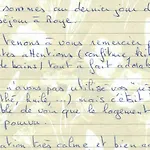 sommes au dernier jour d
séjour à Roye.
tenons à vous remercier
tes attentions (confiture, lait
de bains) tout à fait adorab
n'avons pas utilisé vos
thé, huile, ...) mais c'était
le de voir que le logement
pourvu.
très calme et bien